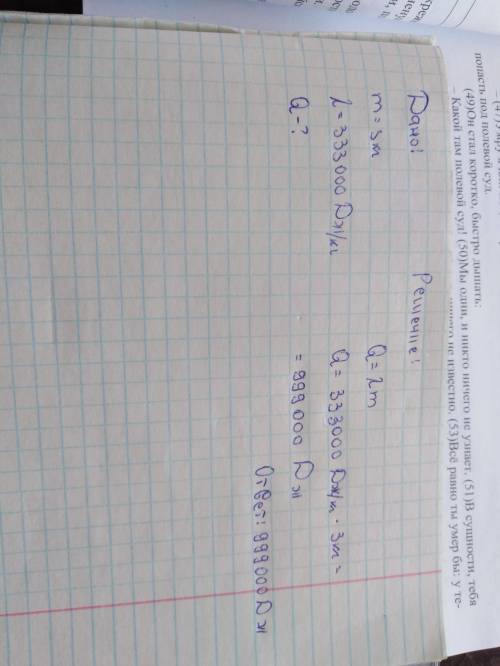 попасть под полевой суд.
(49)Он стал коротко, быстро дышать:
– Какой там полевой суд! (50)Мы одни, и никто ничего не узнает. (51)В сущности, тебя
не известно. (53)Всё равно ты умер бы: у те-
Дано:
m = 3т
λ = 333000 Дж/кг
Q - ?
Решение:
Q = λm
Q = 333000 Дж/т · 3т =
= 999000 Дж
Ответ: 999000 Дж